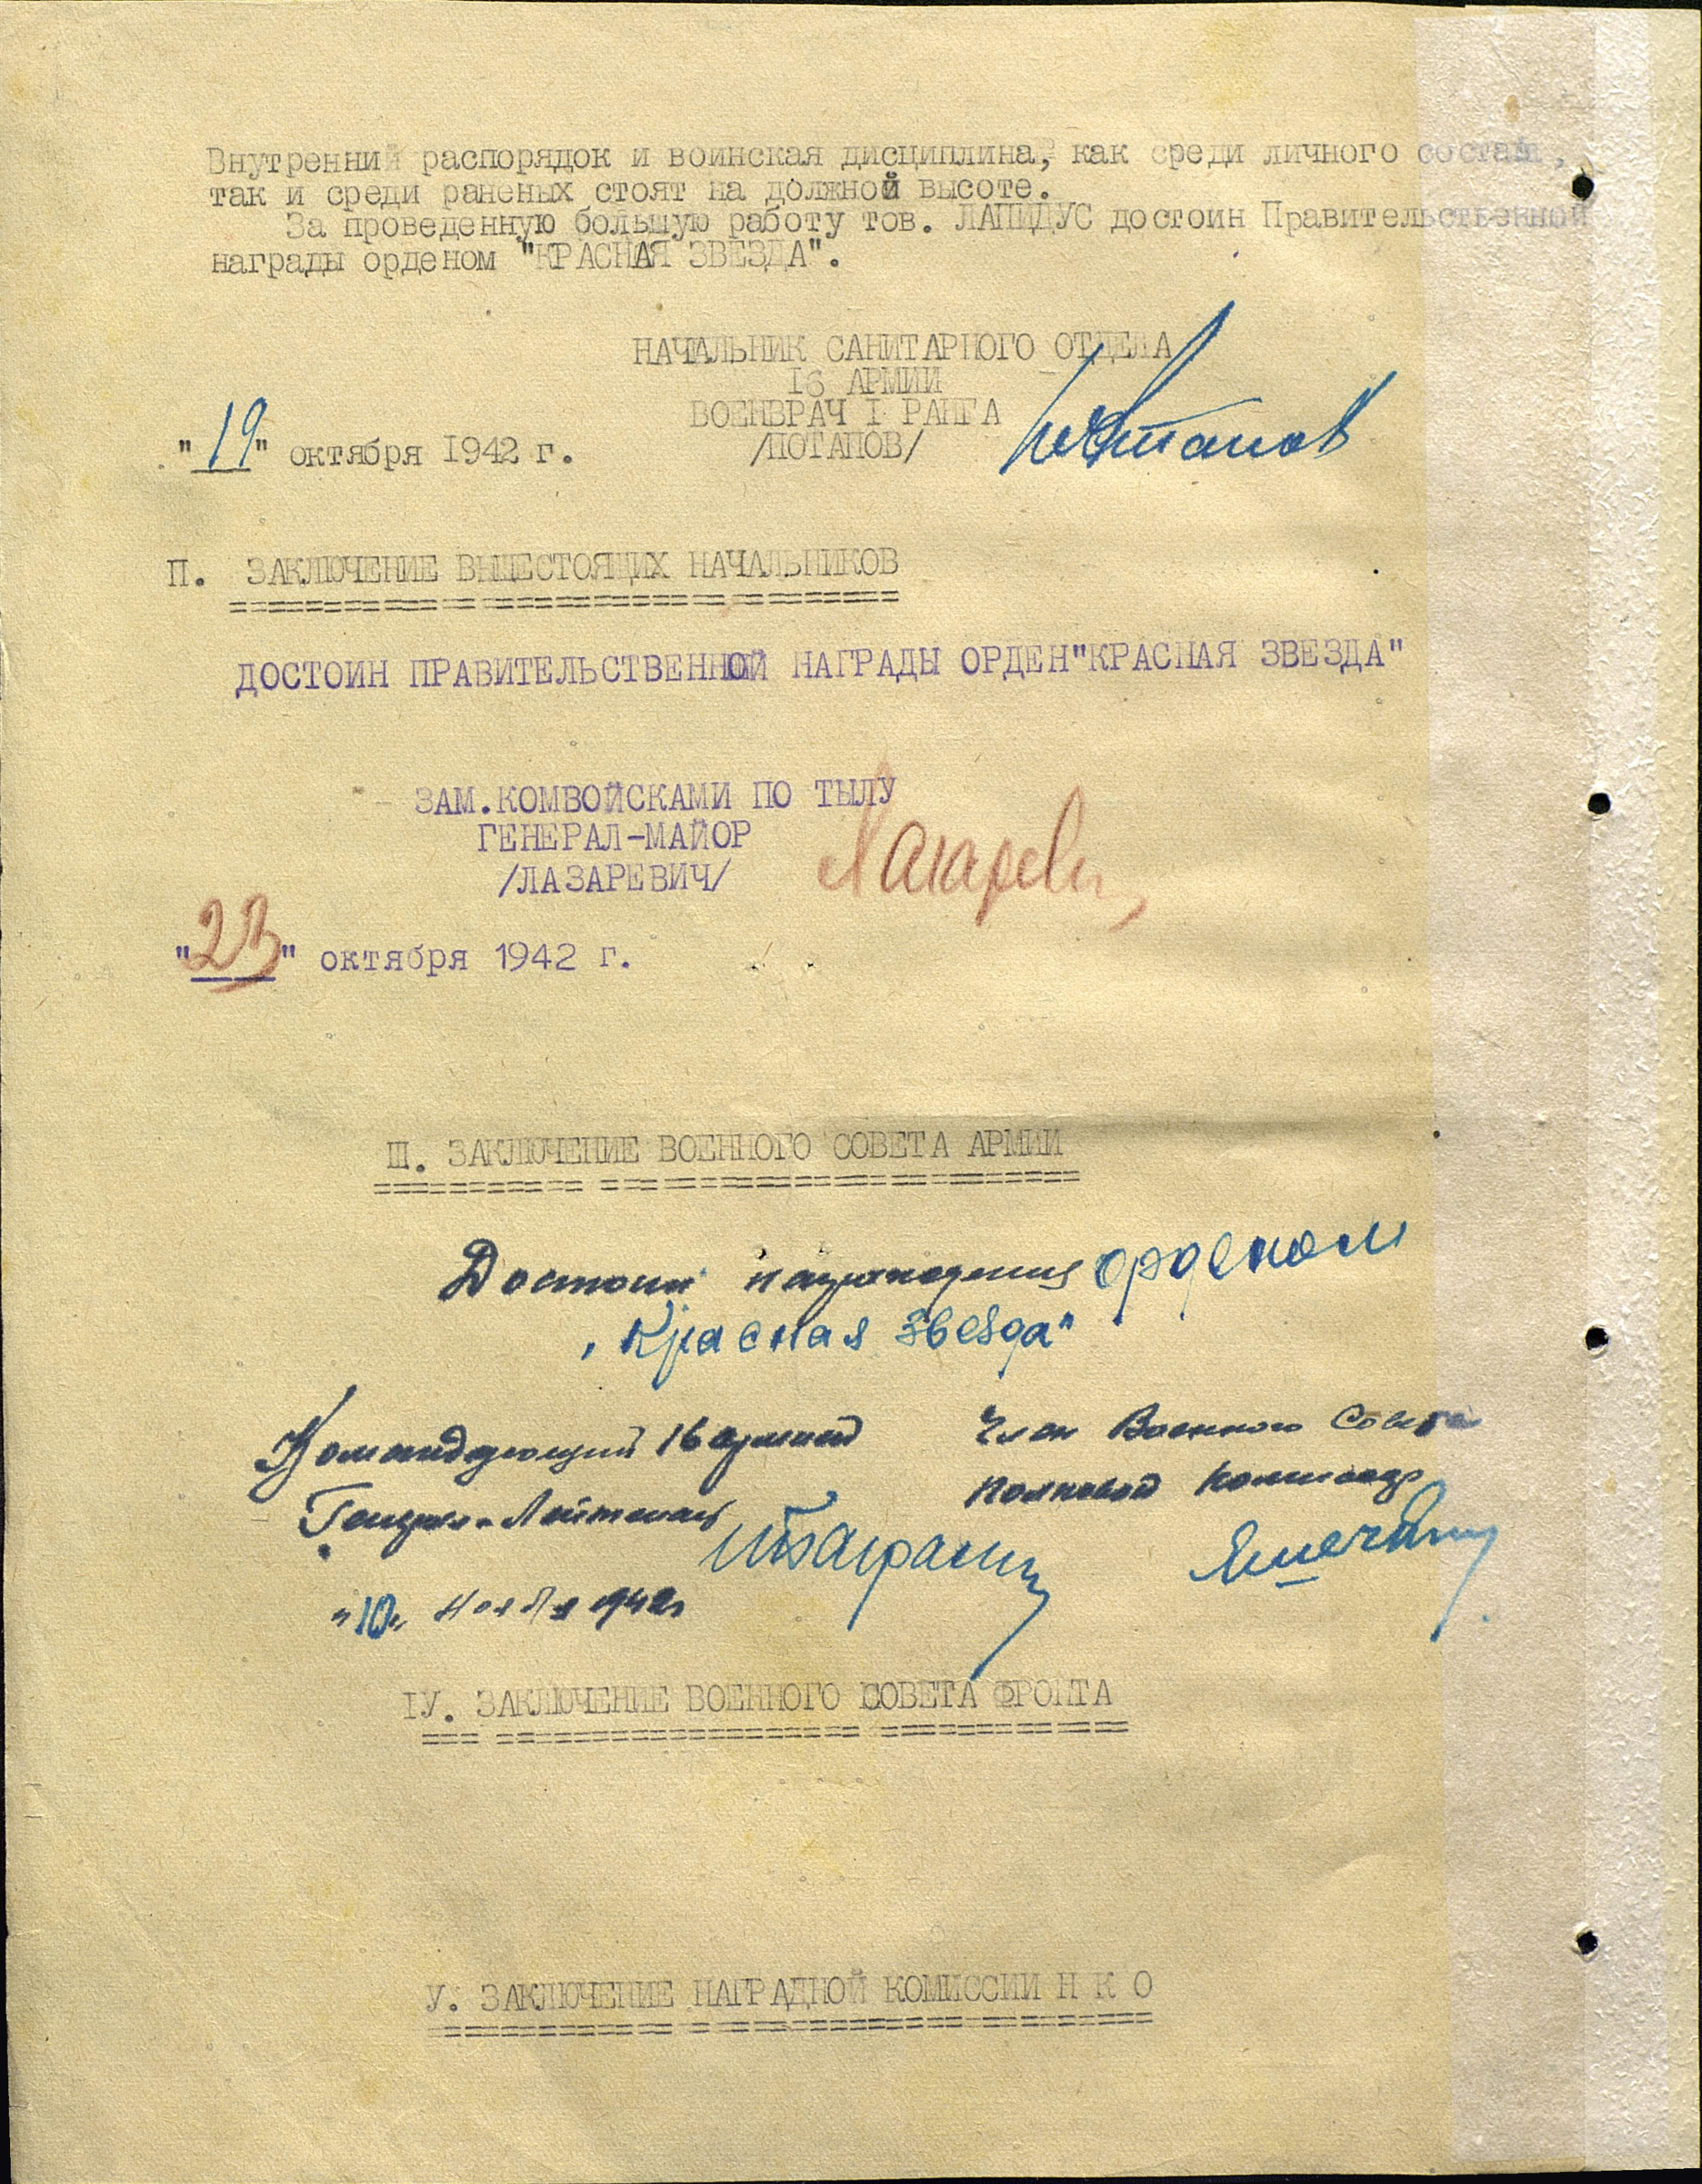 Внутренний распорядок и воинская дисциплина, как среди личного состава,
так и среди раненых стоят на должной высоте.
За проведенную большую работу тов. ЛАПИДУС достоин Правительственной
награды орденом "КРАСНАЯ ЗВЕЗДА".
НАЧАЛЬНИК САНИТАРНОГО ОТДЕЛА
16 АРМИИ
ВОЕНВРАЧ I РАНГА
/ПОТАПОВ/ Потапов
"19" октября 1942 г.
П. ЗАКЛЮЧЕНИЕ ВЫШЕСТОЯЩИХ НАЧАЛЬНИКОВ
ДОСТОИН ПРАВИТЕЛЬСТВЕННОЙ НАГРАДЫ ОРДЕН"КРАСНАЯ ЗВЕЗДА"
ЗАМ.КОМВОЙСКАМИ ПО ТЫЛУ
ГЕНЕРАЛ-МАЙОР
/ЛАЗАРЕВИЧ/ Лазаревич
"23" октября 1942 г.
Ш. ЗАКЛЮЧЕНИЕ ВОЕННОГО СОВЕТА АРМИИ
Достоин награждения орденом
"Красная звезда"
Командующий 16 армией Член Военного Совета
Генерал-Лейтенант Полковой Комиссар
"10" Ноября 1942г
IУ. ЗАКЛЮЧЕНИЕ ВОЕННОГО СОВЕТА ФРОНТА
У. ЗАКЛЮЧЕНИЕ НАГРАДНОЙ КОМИССИИ Н К О